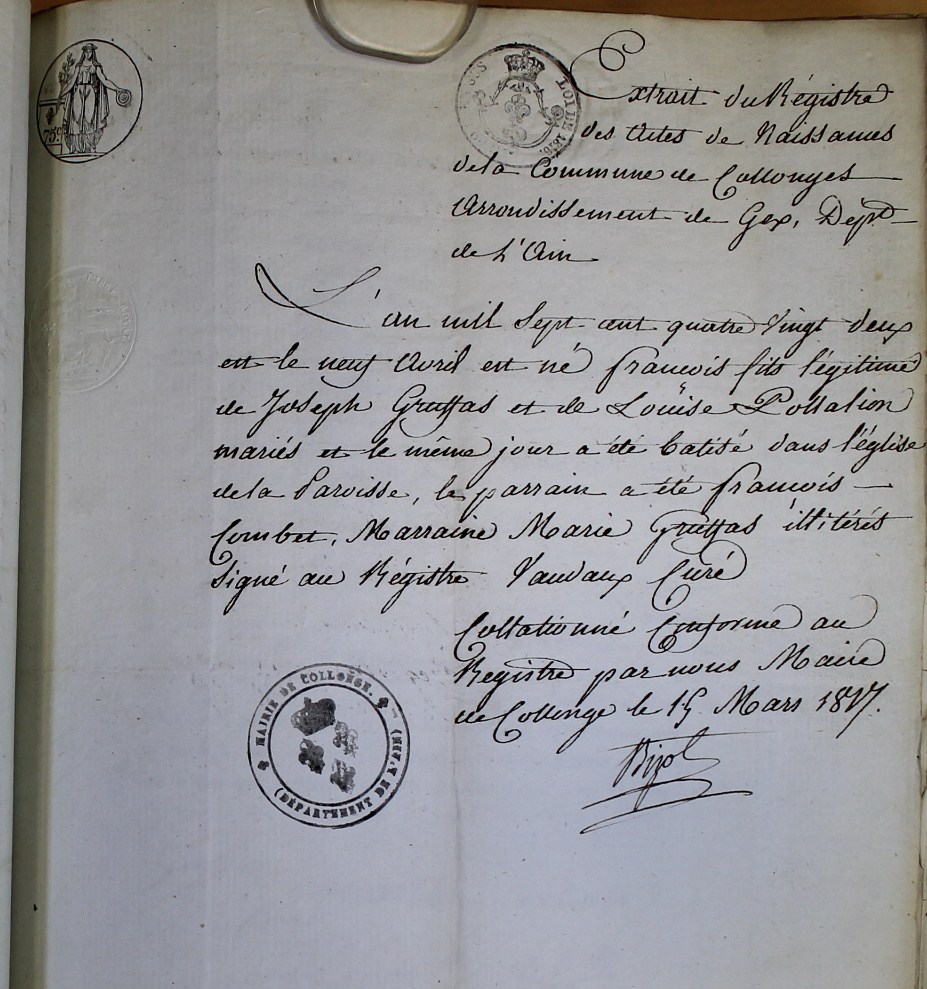 75c
LOI DE 1816.
Extrait du Régistre
des Actes de Naissances
de la Commune de Collonges
Arrondissement de Gex, Dépt
de L'Ain
L'an mil Sept cent quatre vingt deux
et le neuf Avril est né francois fils légitime
de Joseph Gruffas et de Louïse Pollalion
mariés et le même jour a été batisé dans l'église
de la Paroisse, le parrain a été francois
Combet, Marraine Marie Gruffas illitérés
Signé au Régistre Vaudaux Curé
Collationné Conforme au
Registre par nous Maire
de Collonge le 15 Mars 1817.
MAIRIE DE COLLONGE.
(DÉPARTEMENT DE L'AIN)